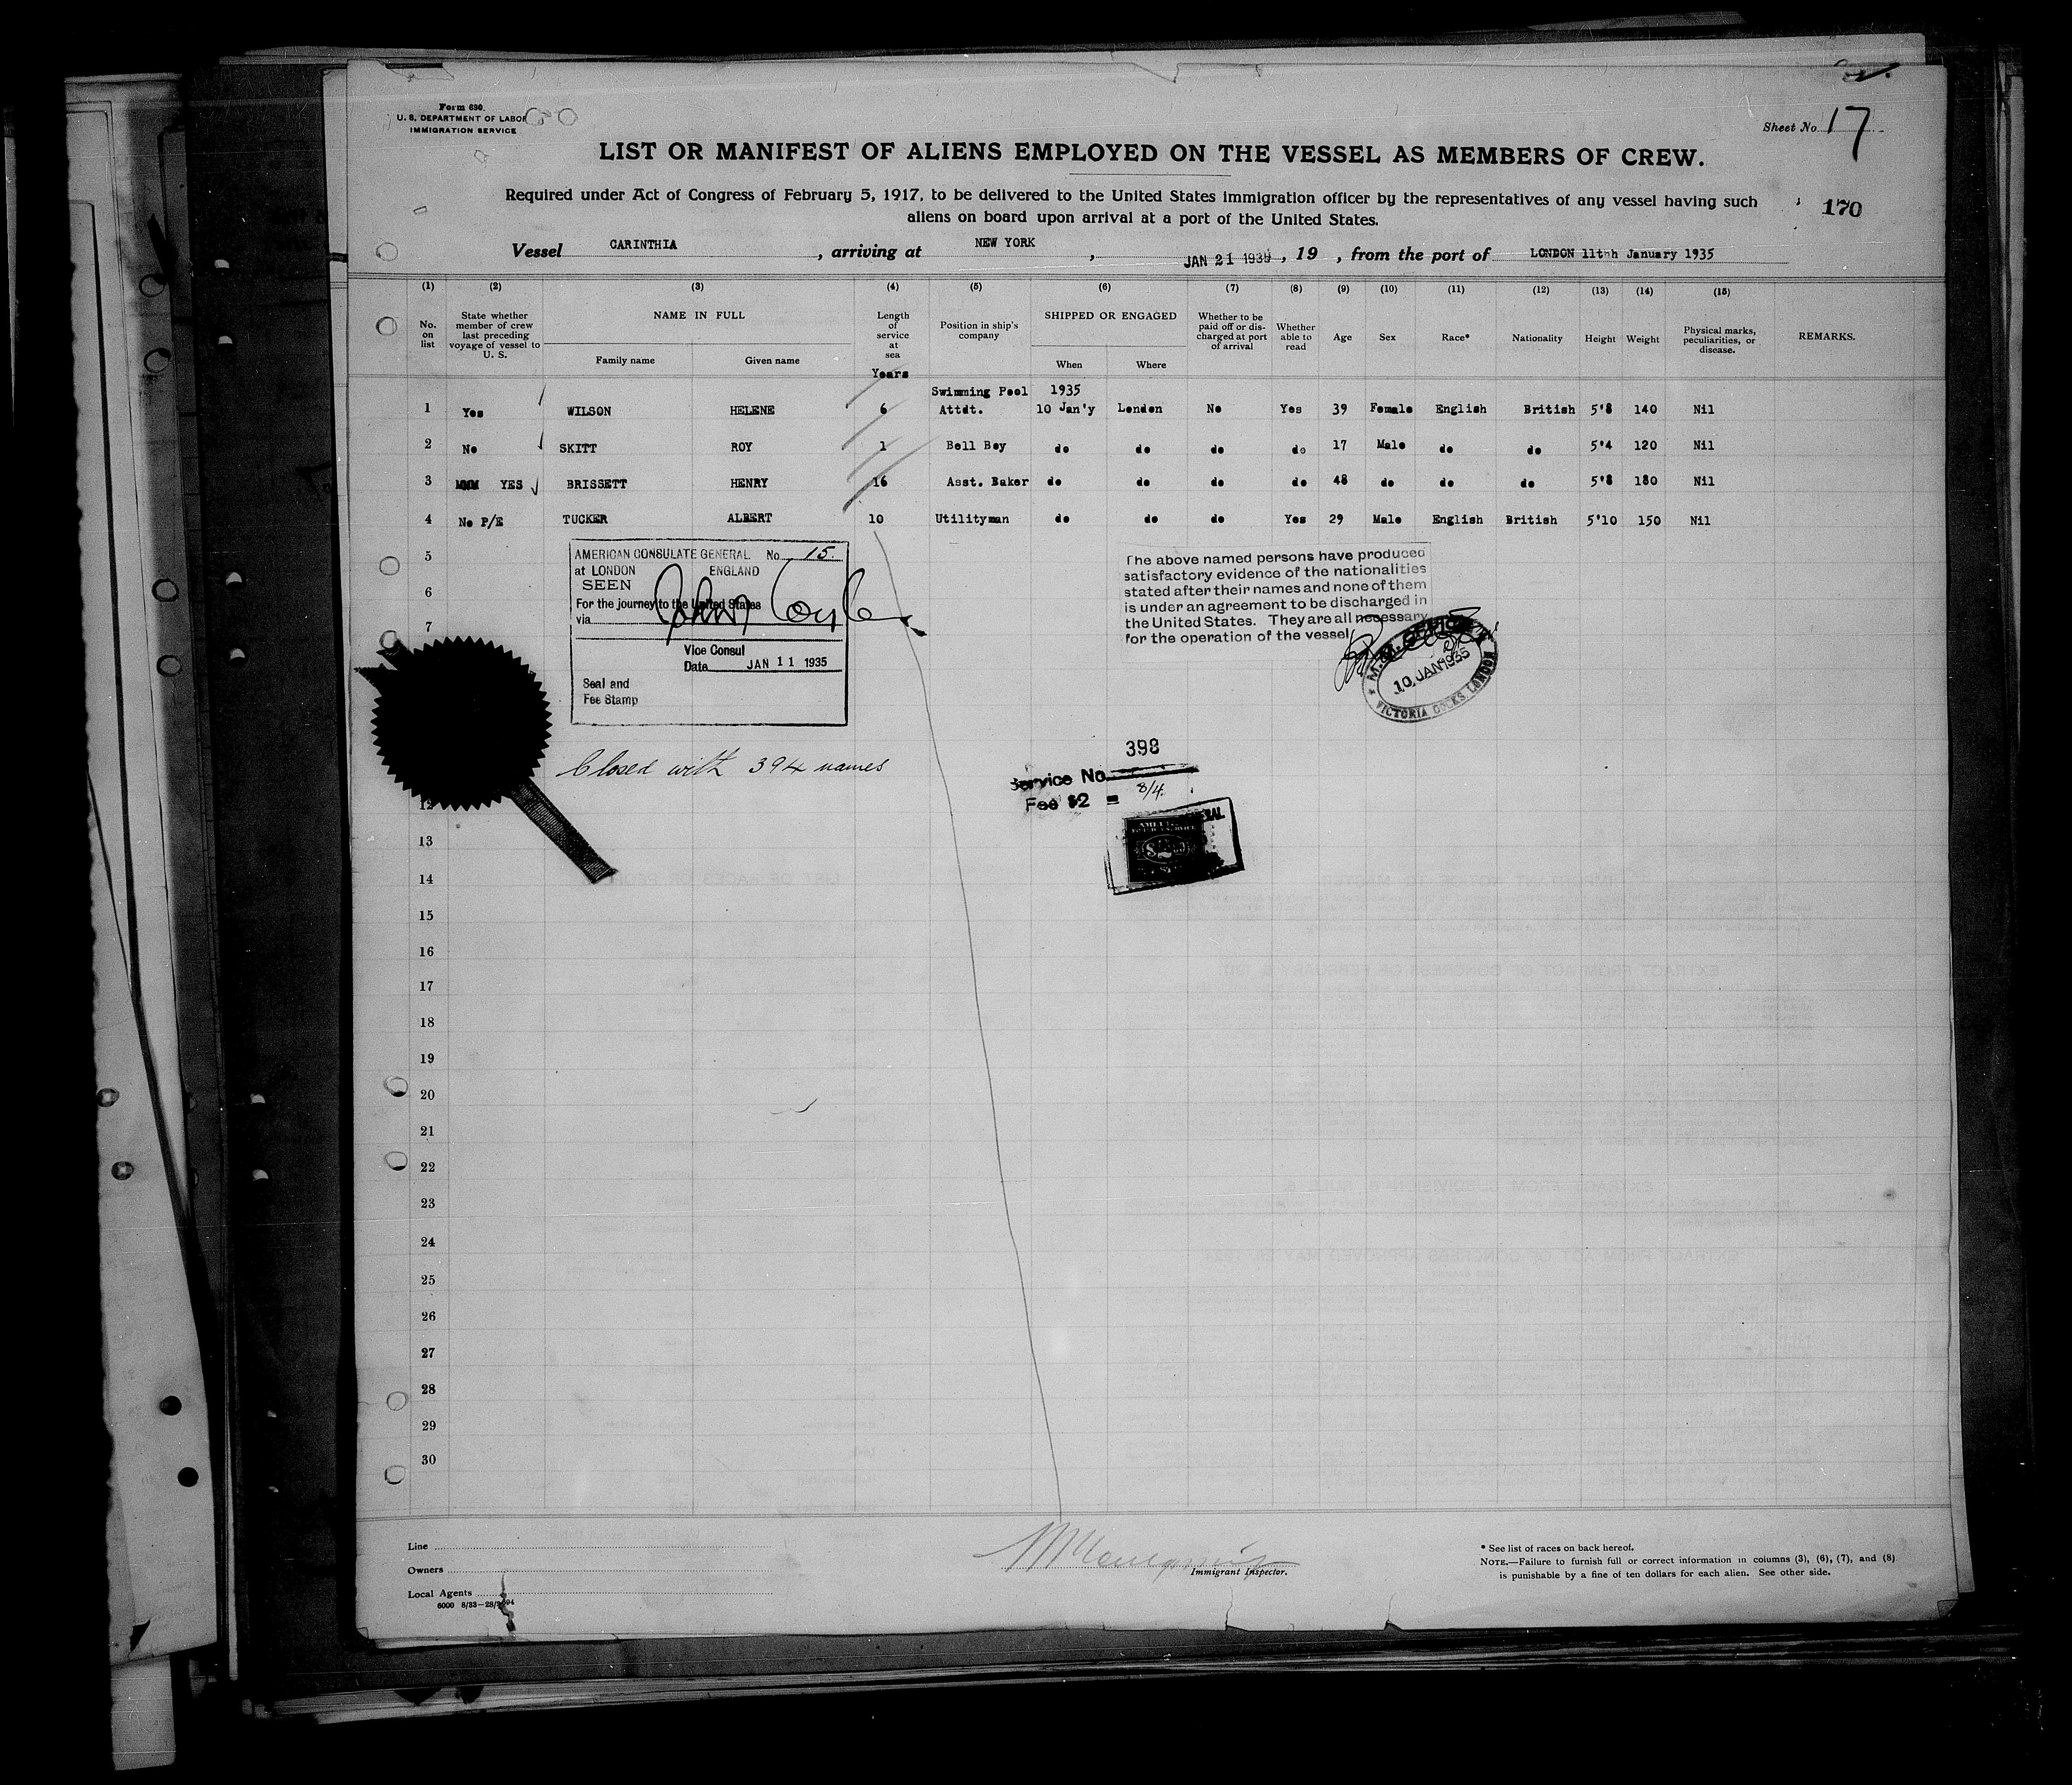 Form 680.
U. S. DEPARTMENT OF LABOR
IMMIGRATION SERVICE
Sheet No. 17
LIST OR MANIFEST OF ALIENS EMPLOYED ON THE VESSEL AS MEMBERS OF CREW.
Required under Act of Congress of February 5, 1917, to be delivered to the United States immigration officer by the representatives of any vessel having such
aliens on board upon arrival at a port of the United States.
170
Vessel CARINTHIA, arriving at NEW YORK, JAN 21 1935, 19 , from the port of LONDON 11thh January 1935
(1) (2) (3) (4) (5) (6) (7) (8) (9) (10) (11) (12) (13) (14) (15)
No. on list
State whether member of crew last preceding voyage of vessel to U. S.
NAME IN FULL
Family name Given name
Length of service at sea
Years
Position in ship's company
SHIPPED OR ENGAGED
When Where
Whether to be paid off or discharged at port of arrival
Whether able to read
Age Sex Race* Nationality Height Weight
Physical marks, peculiarities, or disease.
REMARKS.
Swimming Pool 1935
1 Yes WILSON HELENE 6 Attdt. 10 Jan'y London No Yes 39 Female English British 5'8 140 Nil
2 No SKITT ROY 1 Bell Boy do do do do 17 Male do do 5'4 120 Nil
3 YES BRISSETT HENRY 16 Asst. Baker do do do do 48 do do do 5'8 180 Nil
4 No P/E TUCKER ALBERT 10 Utilityman do do do Yes 29 Male English British 5'10 150 Nil
5
6
7
AMERICAN CONSULATE GENERAL No. 15.
at LONDON ENGLAND
SEEN
For the journey to the United States
via
Vice Consul
Date JAN 11 1935
Seal and
Fee Stamp
The above named persons have produced
satisfactory evidence of the nationalities
stated after their names and none of them
is under an agreement to be discharged in
the United States. They are all necessary
for the operation of the vessel
M.M. OFFICE
10 JAN 1935
VICTORIA DOCKS LONDON
Closed with 394 names
398
Service No.
Fee $2 = 8/4.
12
13
14
15
16
17
18
19
20
21
22
23
24
25
26
27
28
29
30
Line
Owners
Local Agents
Immigrant Inspector.
* See list of races on back hereof.
NOTE.—Failure to furnish full or correct information in columns (3), (6), (7), and (8)
is punishable by a fine of ten dollars for each alien. See other side.